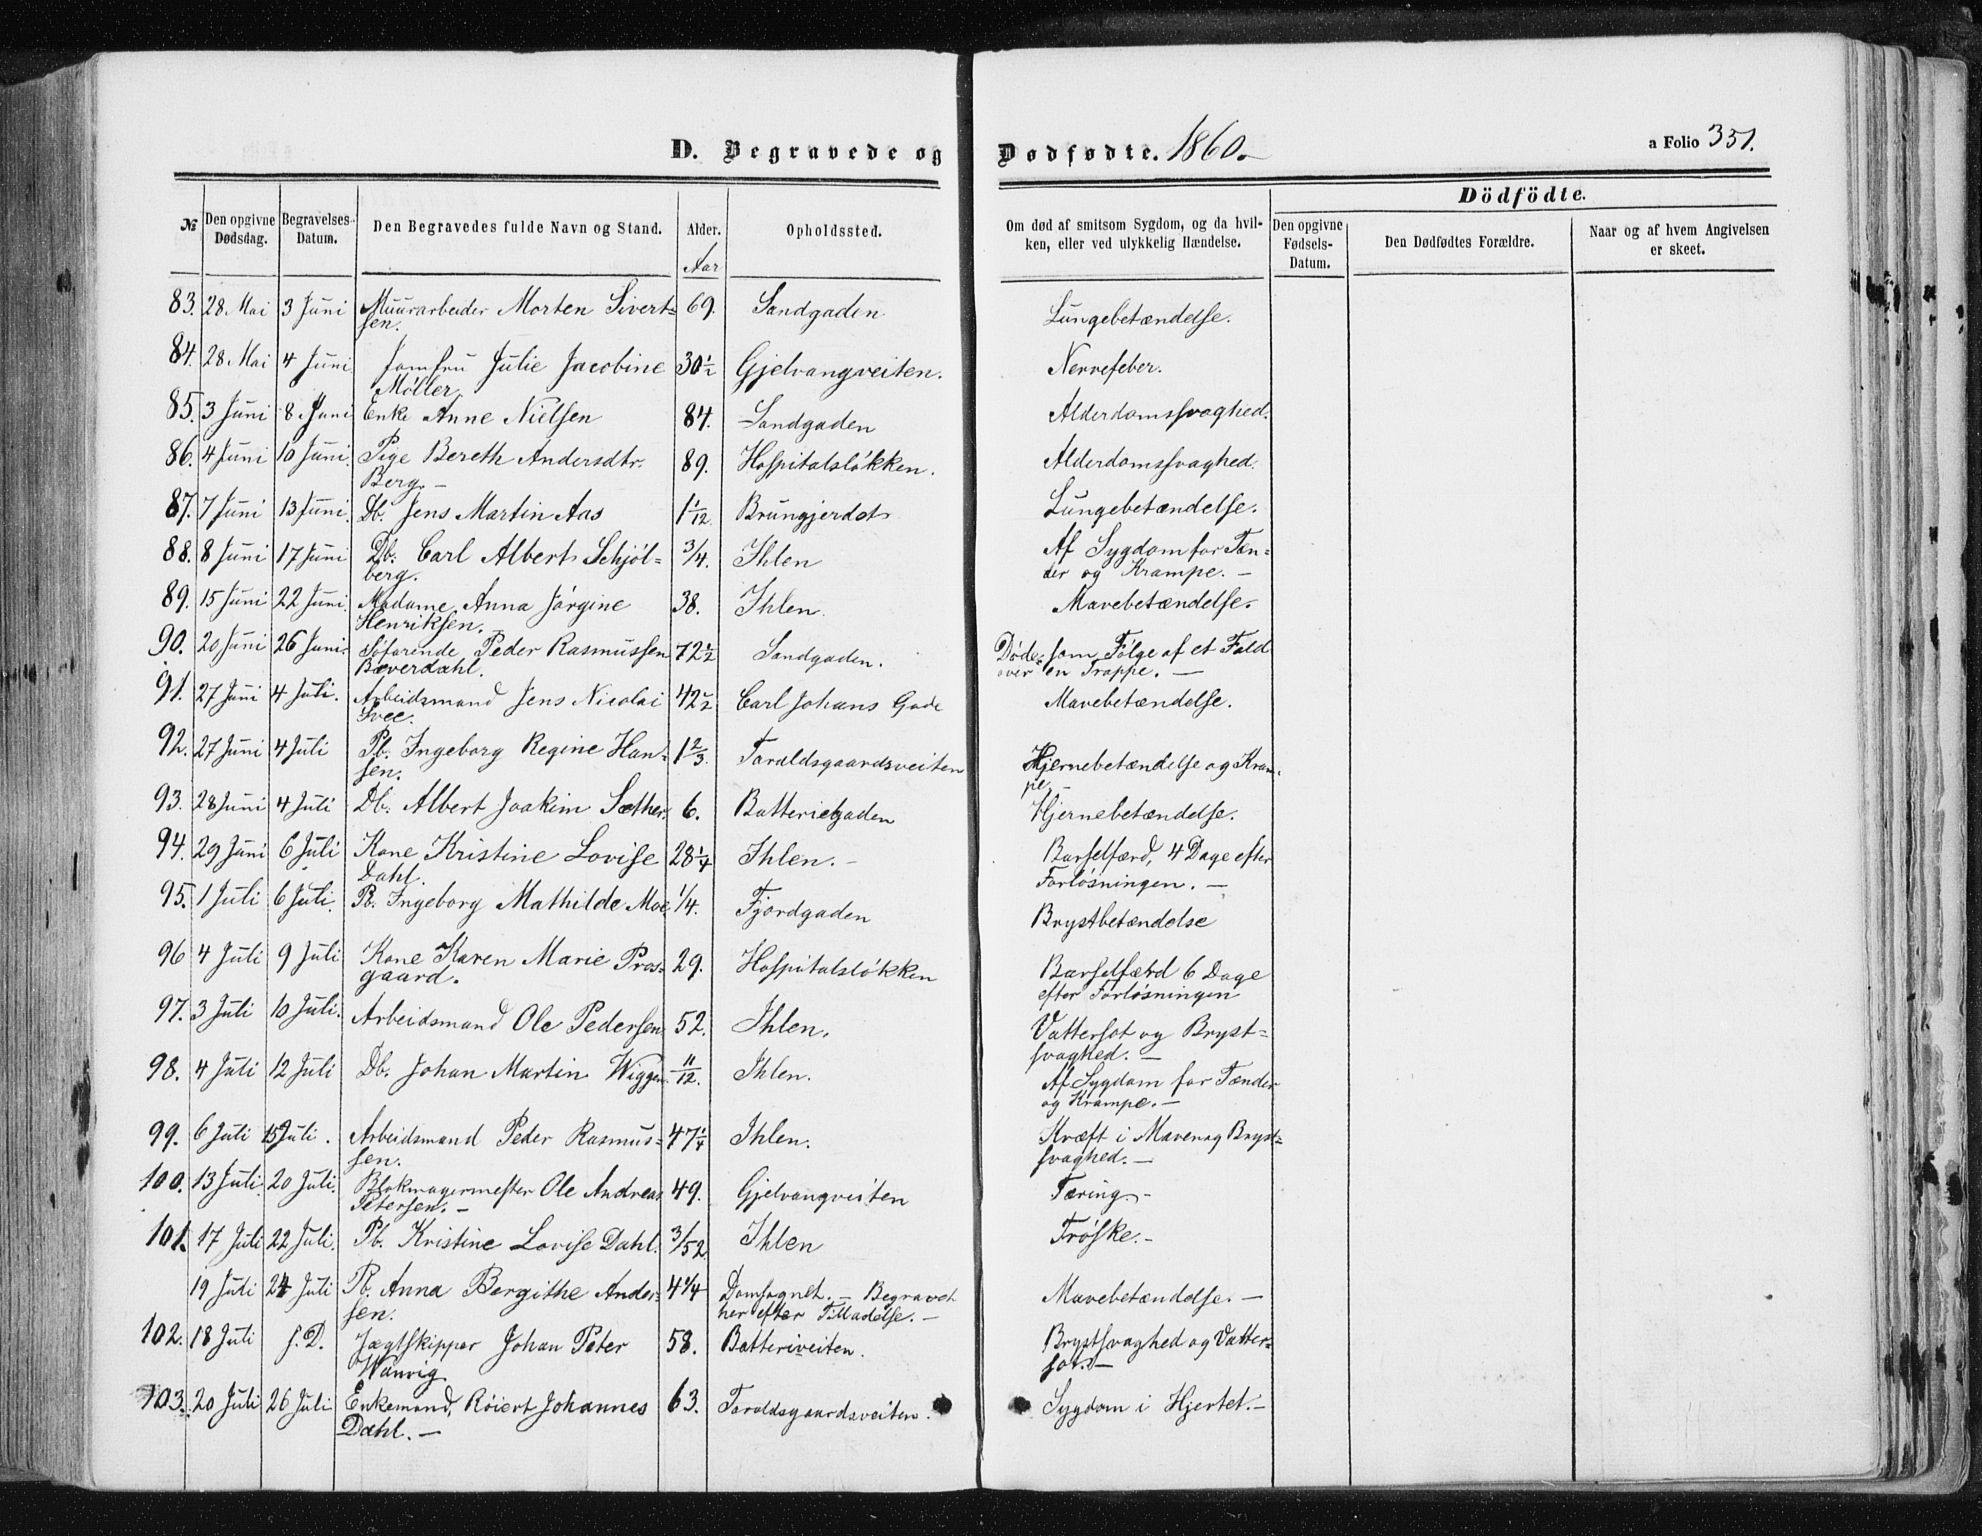 D. Begravede og Dødfødte. 1860.
a Folio 351.
№ Den opgivne Dødsdag. Begravelses-Datum. Den Begravedes fulde Navn og Stand. Alder. Opholdssted. Om død af smitsom Sygdom, og da hvil-
ken, eller ved ulykkelig Hændelse.
Dödfödte.
Den opgivne Fødsels-Datum. Den Dødfødtes Forældre. Naar og af hvem Angivelsen er skeet.
Aar
83. 28 Mai 3 Juni Muurarbeider Morten Sivert= 69. Sandgaden Lungebetændelse.
sen.
84. 28 Mai 4 Juni Jomfru Julie Jacobine 30 1/2 Gjelvangveiten. Nervefeber.
Møller.
85. 3 Juni 8 Juni Enke Anne Nielsen 84. Sandgaden Alderdomssvaghed.
86. 4 Juni 10 Juni. Pige Bereth Andersdtr. 89. Hospitalsløkken. Alderdomssvaghed.
Berg. –
87. 7 Juni 13 Juni. Db. Jens Martin Aas 1 1/12. Brungjerdet Lungebetændelse.
88. 8 Juni 17 Juni Db. Carl Albert Schjöl= 3/4. Ihlen Af Sygdom for Tæn=
berg. der og Krampe. –
89. 15 Juni 22 Juni. Madame Anna Jørgine 38. Ihlen. Mavebetændelse.
Henriksen.
90. 20 Juni 26 Juni. Søfarende Peder Rasmussen 72 1/2 Sandgaden. Døde som Følge af et Fald
Bæverdahl. over en Trappe. –
91. 27 Juni 4 Juli. Arbeidsmand Jens Nicolai 42 1/2 Carl Johans Gade Mavebetændelse.
Svee.
92. 27 Juni 4 Juli Pb. Ingeborg Regine Han= 1 2/3. Taraldsgaardsveiten Hjernebetændelse og Kram=
sen. pe. –
93. 28 Juni 4 Juli Db. Albert Joakim Sæther. 6. Batterietgaden Hjernebetændelse.
94. 29 Juni 6 Juli Kone Kristine Lovise 28 1/4 Ihlen. – Barselfærd, 4 Dage efter
Dahl. Forløsningen. –
95. 1 Juli 6 Juli. Pb. Ingeborg Mathilde Moe 1/4. Fjordgaden Brystbetændelse
96 4 Juli 9 Juli Kone Karen Marie Præs= 29. Hospitalsløkken Barselfærd 6 Dage
gaard. efter Forløsningen
97. 3 Juli 10 Juli. Arbeidsmand Ole Pedersen 52. Ihlen. Vattersot og Bryst=
svaghed. –
98. 4 Juli 12 Juli Db. Johan Martin Wiggen. 11/12. Ihlen. Af Sygdom for Tænder
og Krampe. –
99. 6 Juli 15 Juli. Arbeidsmand Peder Rasmus= 47 1/4 Ihlen. Kræft i Maven og Bryst=
sen. svaghed. –
100. 13 Juli. 20 Juli. Blokmagermester Ole Andreas 49. Gjelvangveiten Tæring. –
Petersen. –
101. 17 Juli 22 Juli. Pb. Kristine Lovise Dahl. 3/52 Ihlen Trøske. –
19 Juli 24 Juli Pb. Anna Bergithe Ander= 4 1/4 Domsognet. – Begravet Mavebetændelse. –
sen. her efter Tilladelse. –
102. 18 Juli s. D. Jægtskipper Johan Peter 58. Batteriveiten. Brystsvaghed og Vatter=
Wanvig sot. –
103. 20 Juli 26 Juli Enkemand, Røiert Johannes 63. Taraldsgaardsveiten. Sygdom i Hjertet. –
Dahl. –